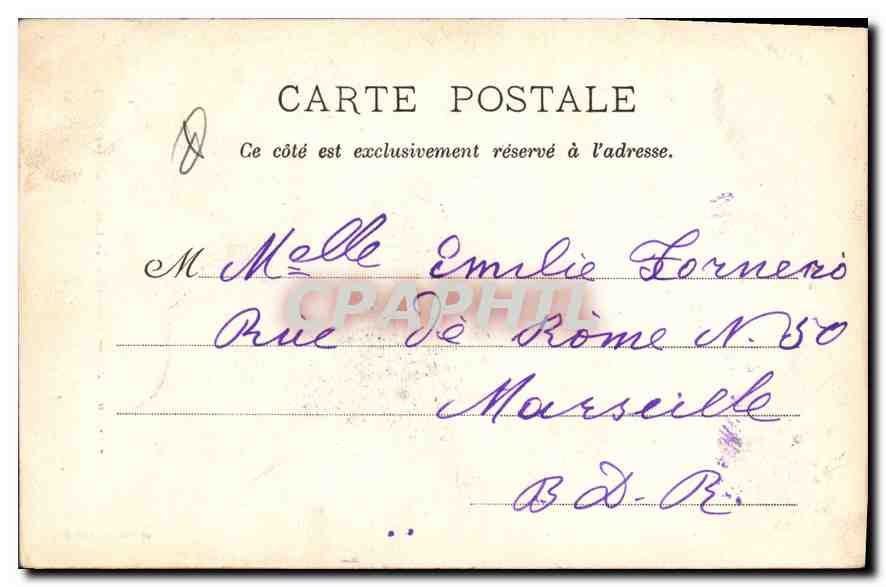 CARTE POSTALE
Ce côté est exclusivement réservé à l'adresse.
M Melle Emilie Fornero
CPAPHIL
Rue de Rome N. 50
Marseille
B D. R.